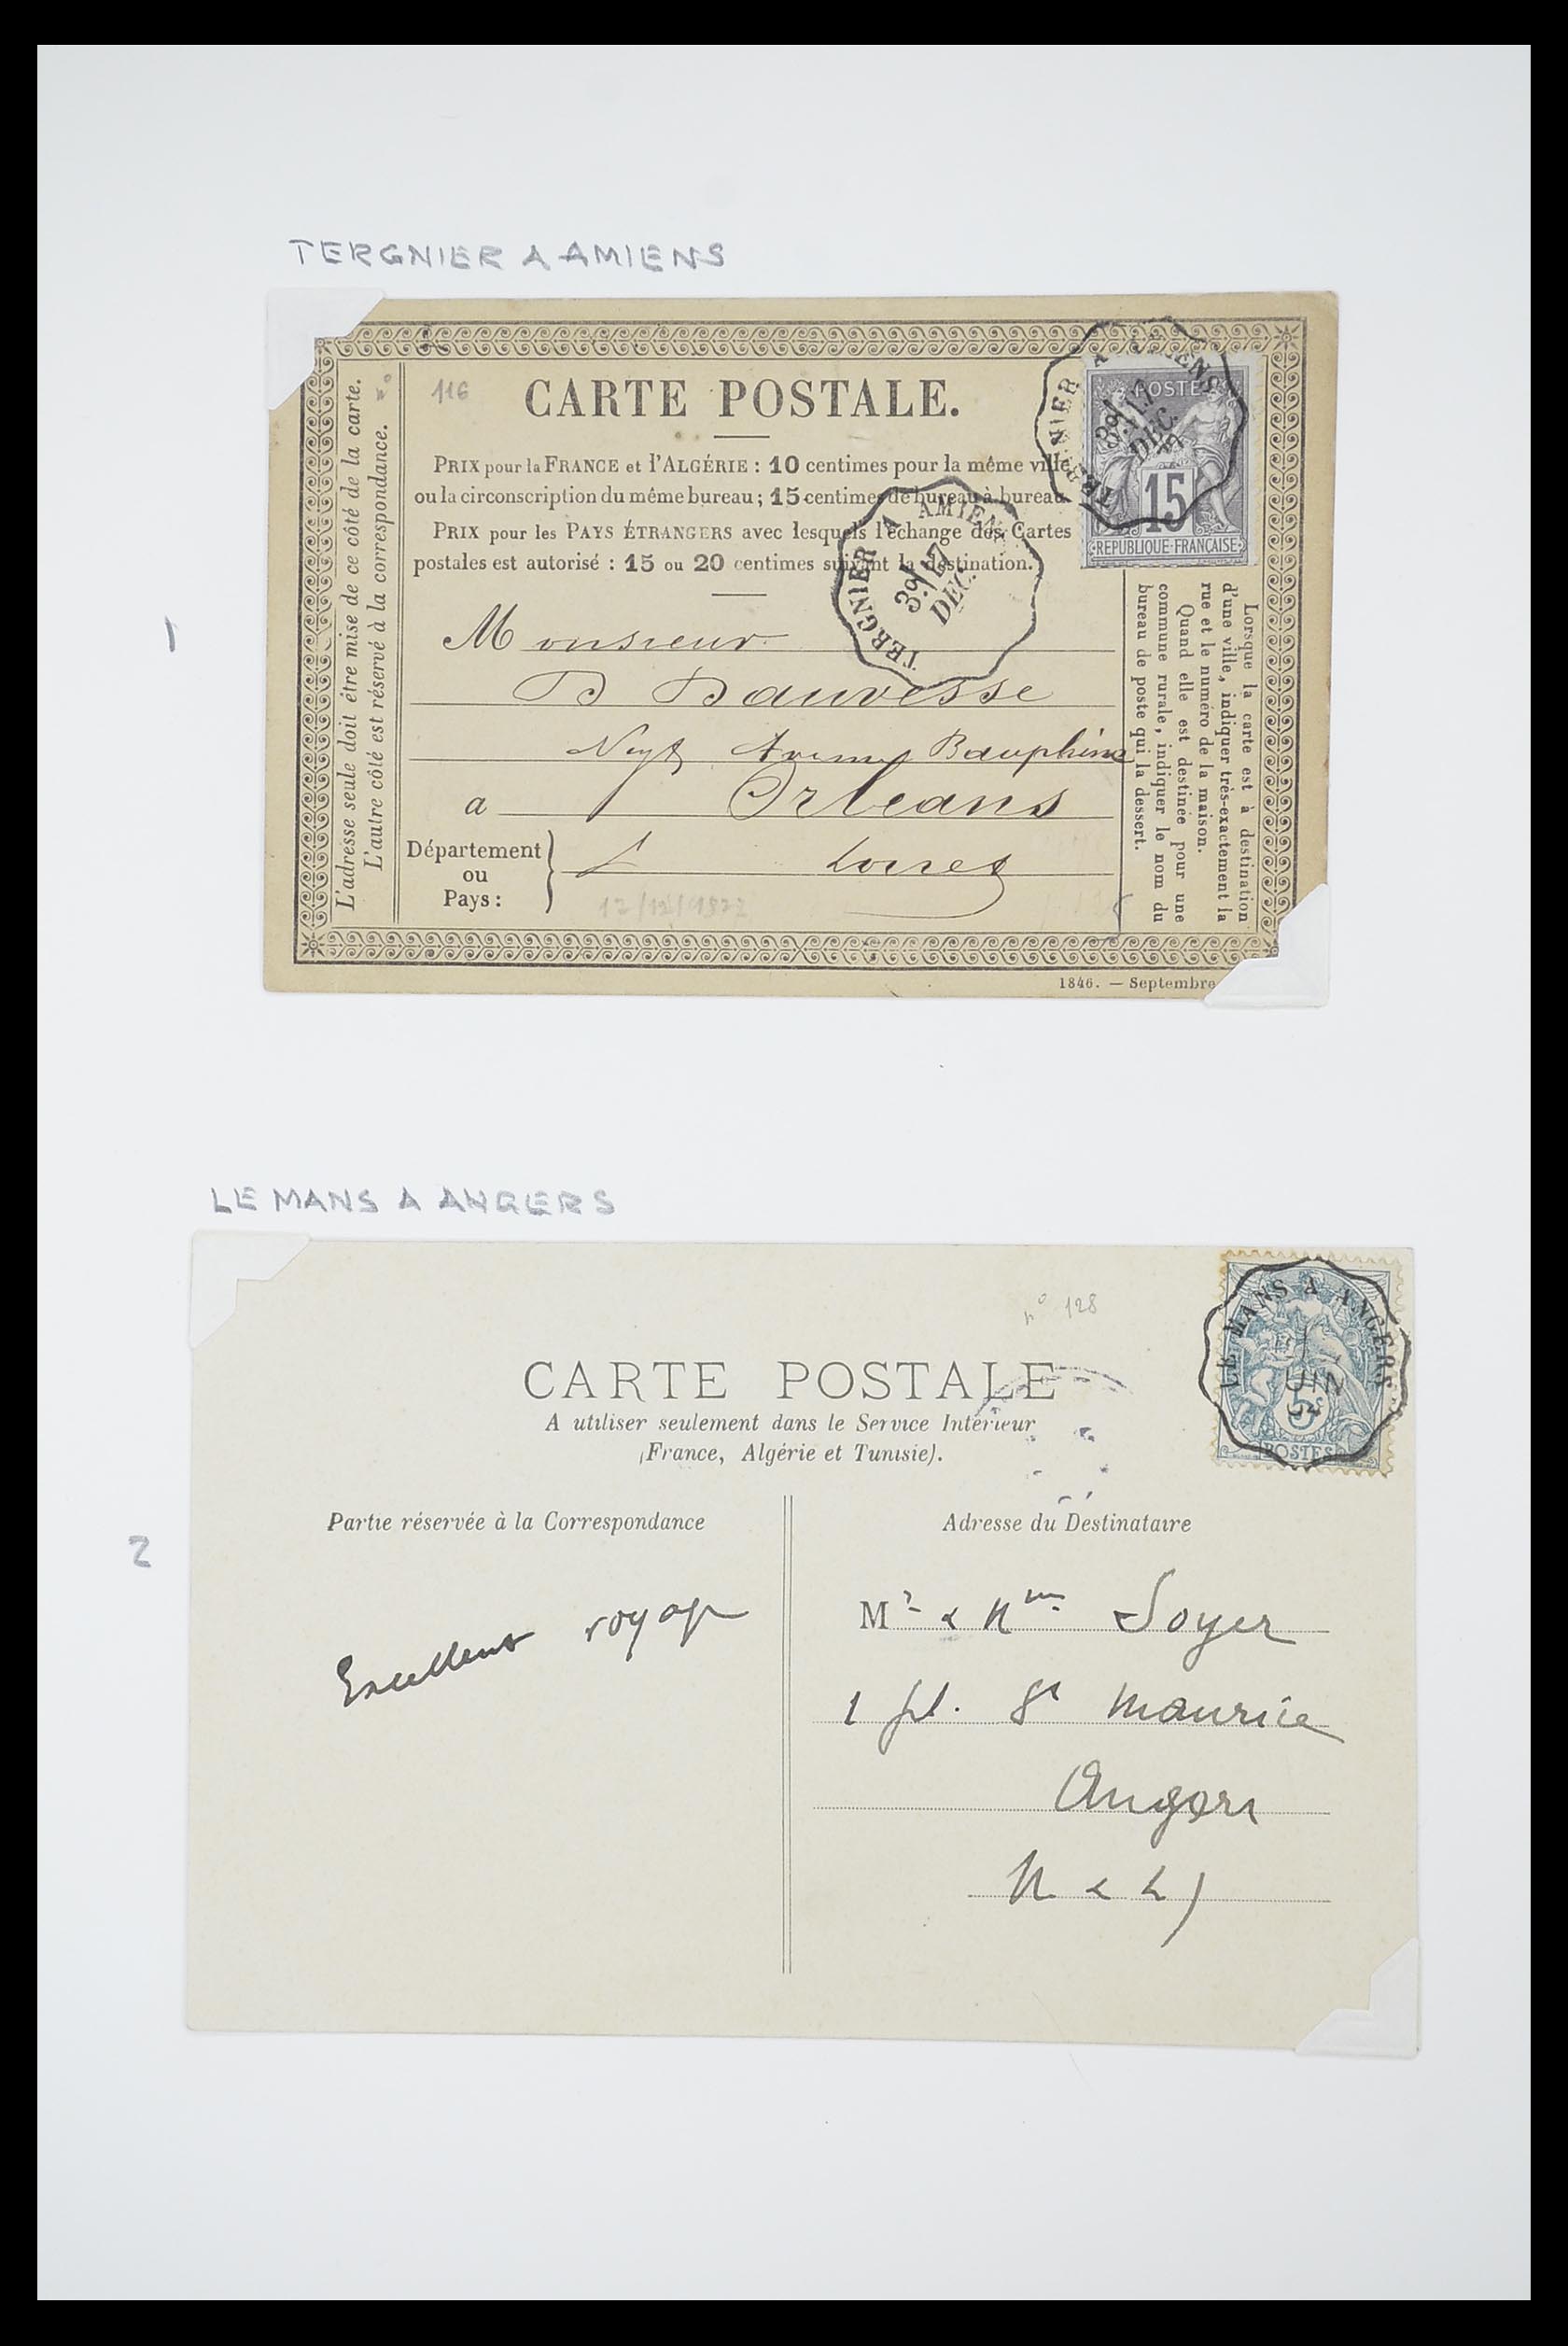 TERGNIER A AMIENS
1
n° 116
CARTE POSTALE.
PRIX pour la FRANCE et l'ALGÉRIE : 10 centimes pour la même ville
ou la circonscription du même bureau ; 15 centimes de bureau à bureau.
PRIX pour les PAYS ÉTRANGERS avec lesquels l'échange des Cartes
postales est autorisé : 15 ou 20 centimes suivant la destination.
L'adresse seule doit être mise de ce côté de la carte.
L'autre côté est réservé à la correspondance.
POSTES
15
REPUBLIQUE FRANÇAISE
TERGNIER A AMIENS
39/17
DEC.
TERGNIER A AMIENS
39/17
DEC.
Monsieur
D Dauvesse
Avenue Dauphine
a Orléans
Département
ou
Pays :
Loiret
17/12/1877
Lorsque la carte est à destination
d'une ville, indiquer très-exactement la
rue et le numéro de la maison.
Quand elle est destinée pour une
commune rurale, indiquer le nom du
bureau de poste qui la dessert.
1846. — Septembre
LE MANS A ANGERS
2
n° 128
LE MANS A ANGERS
JUIN
5c
POSTES
CARTE POSTALE
A utiliser seulement dans le Service Intérieur
(France, Algérie et Tunisie).
Partie réservée à la Correspondance
Adresse du Destinataire
Excellent voyage
Mr & Mme Soyer
1 pl. St Maurice
Angers
M & L)